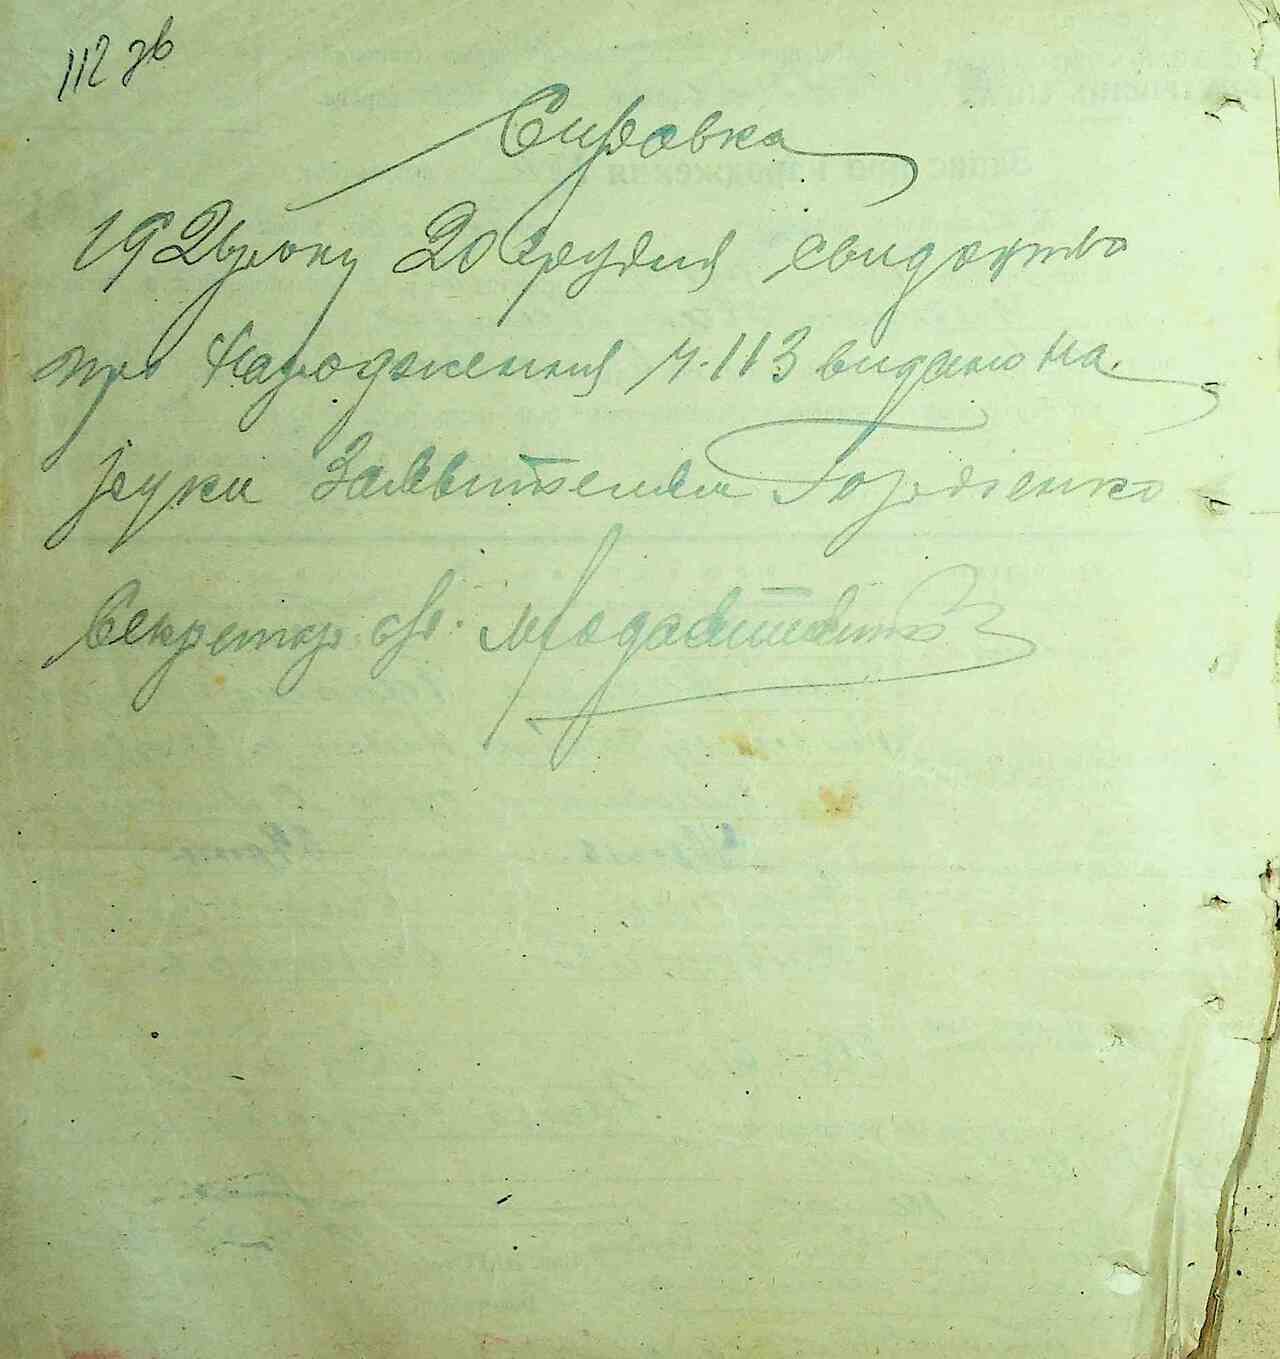 112 зв
Справка
192 року 20 грудня свидоцтво
про народження ч. 113 видано на
руки Заявителям Гордіенко
Секретар с/р.